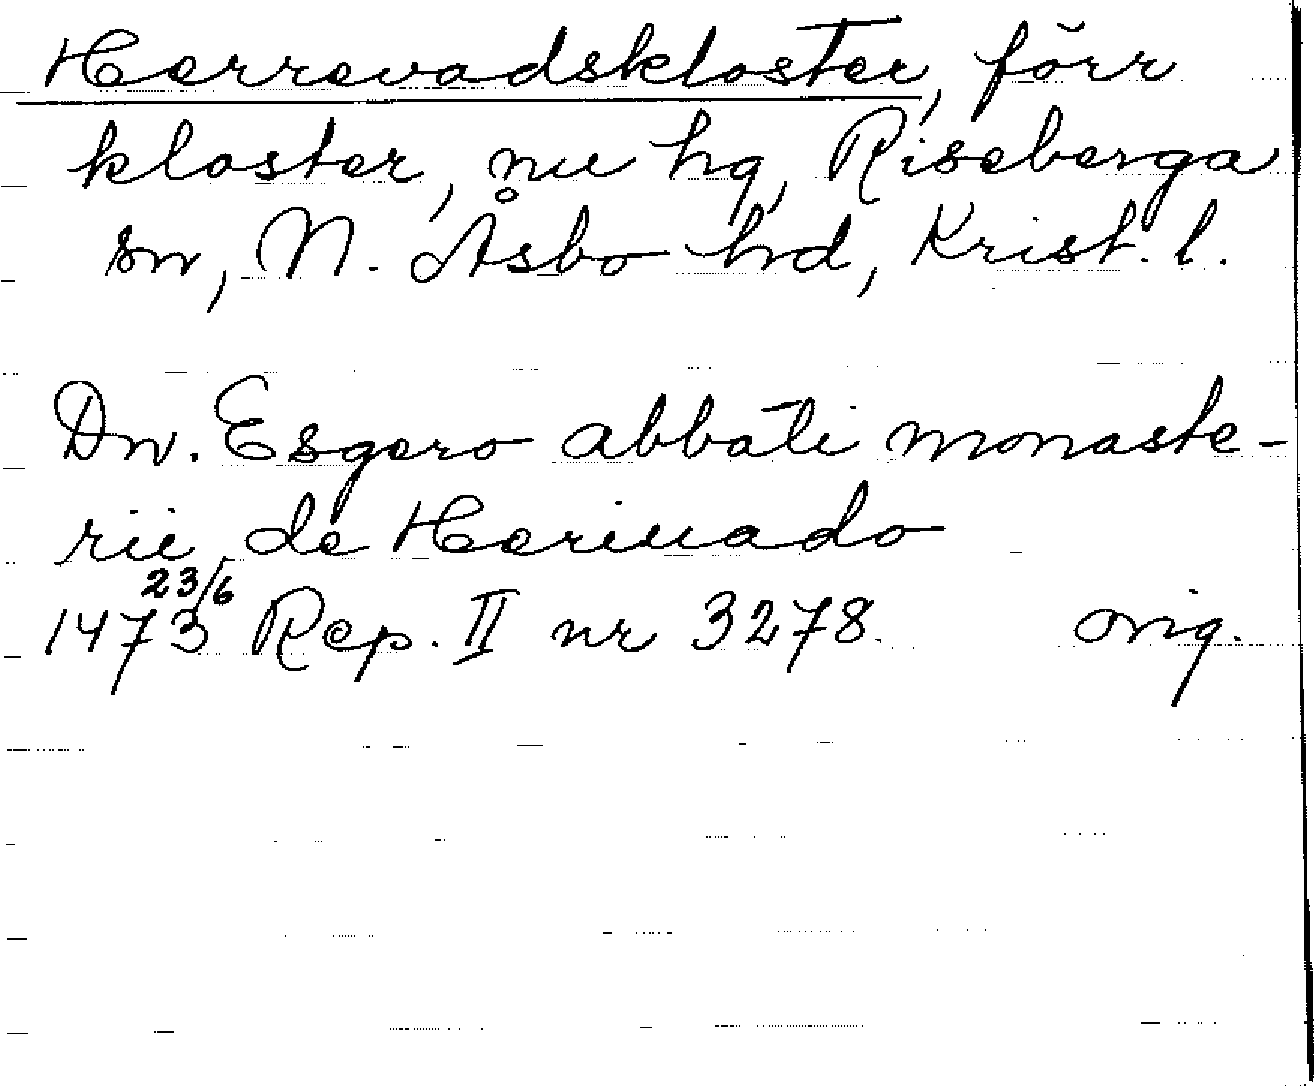 Herrevadskloster, förr
kloster, nu hg, Riseberga
sn, N. Åsbo hd, Krist. l.
Dn. Esgero abbati monaste-
rii de Heriuado
1473 23/6 Rep. II nr 3278 orig.